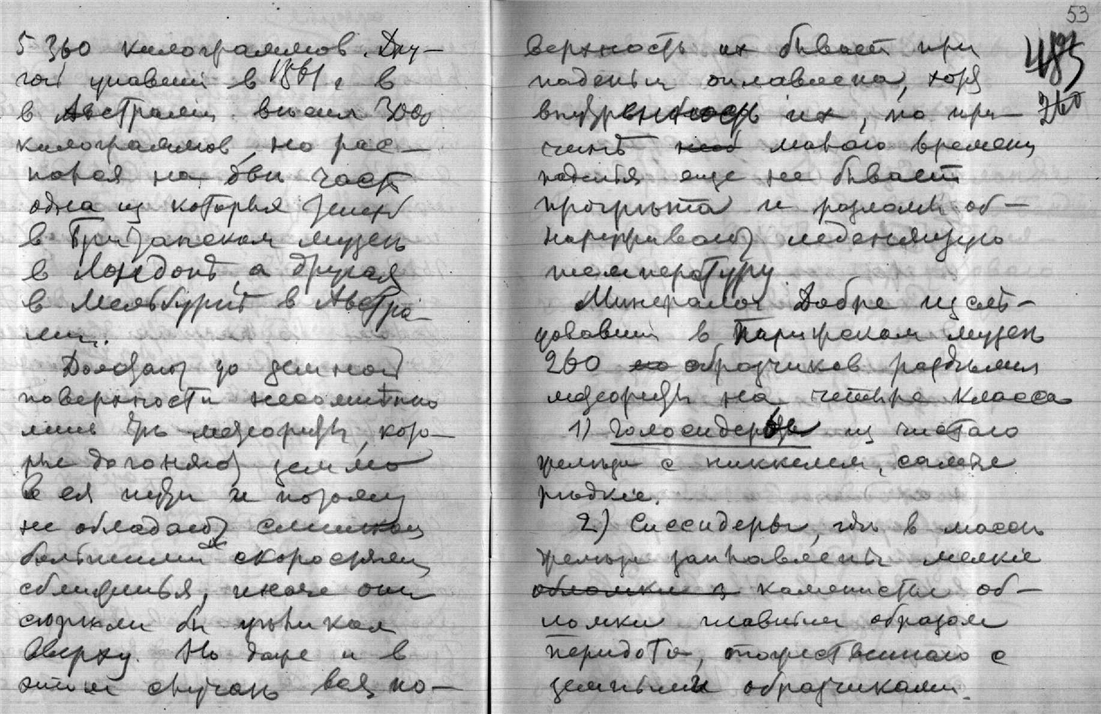 5360 килограммов. Дру-
гой упавший в 1861 г. в
в Австралии весил 3000
килограммов, но рас-
пался на две части
одна из которых теперь
в Британском музее
в Лондонѣ а другая
в Мельбурнѣ в Австра-
лии.
Долетают до земной
поверхности несомнѣнно
лишь тѣ метеориты, кото-
рые догоняют землю
в ея пути и потому
не обладают слишком
большими скоростями
сближенья, иначе они
сгорѣли бы цѣликом
вверху. Но даже и в
этом случаѣ вся по-
53
верхность их бывает при
паденьи оплавлена, хотя
внутренность их, по при-
чинѣ малаго времени
паденья еще не бывает
прогрѣта и разломы об-
наруживают леденящую
температуру
Минералог Добре изслѣ-
довавший в Парижском музеѣ
260 образчиков раздѣлил
метеориты на четыре класса
1) Голосидеры из чистаго
желѣза с никкелем, самые
рѣдкие.
2) Сиссидеры, гдѣ в массѣ
желѣза заплавлены мелкие
обломки и каменистые об-
ломки главным образом
перидота, тожественнаго с
земными образчиками.